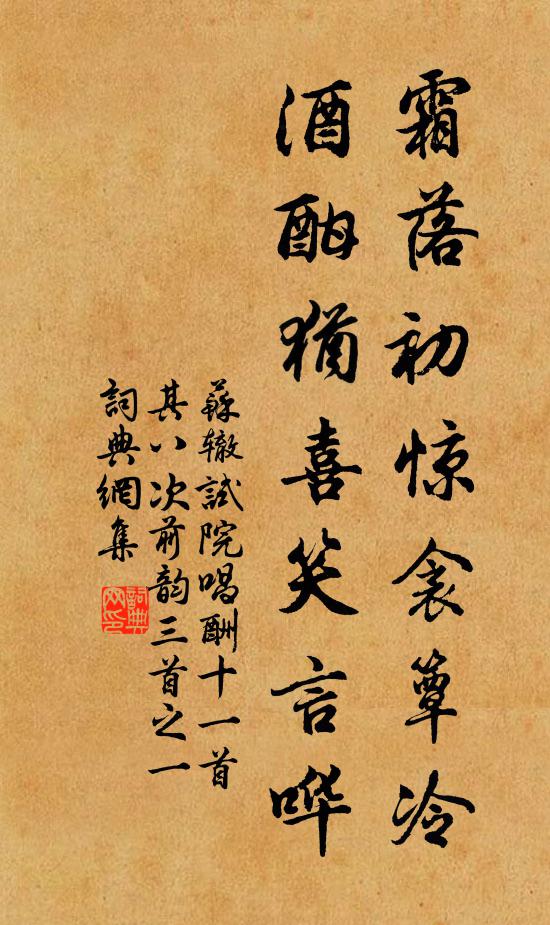 霜落初惊衾簟冷
酒酣犹喜笑言哗
蘇辙試院唱酬十一首
其八次前韵三首之一
詞典網集
詞典網印